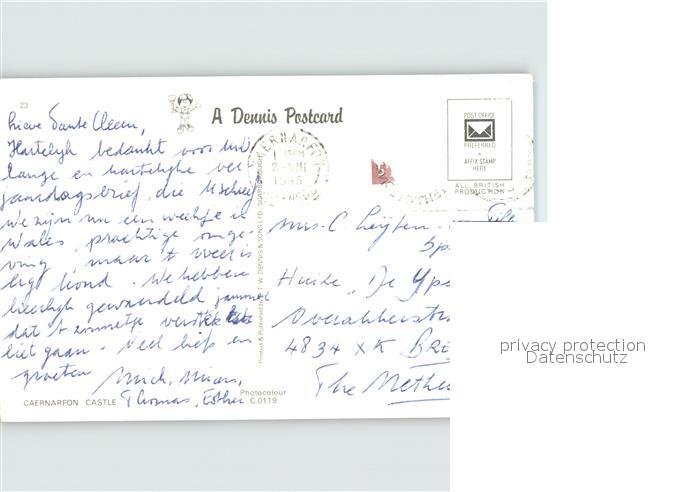 23
A Dennis Postcard
POST OFFICE
PREFERRED
AFFIX STAMP
HERE
ALL BRITISH
PRODUCTION
CAERNARFON
2-VIII
1985
Lieve Tante Cleem,
Hartelijk bedankt voor Uw
lange en hartelijke ver
jaardagsbrief, die U schreef
We zijn nu een weekje in
Wales, prachtige omge-
ving, maar 't weer is
erg koud. We hebben
heerlijk gewandeld jammer
dat 't zonnetje verstek
liet gaan. Veel liefs en
groeten
Thomas, Esther
Mrs. C. Leijten-
Huize "De Ype
4834 XK BRE
The Nether
Printed & Published by E.T.W. DENNIS & SONS LTD. SCARBOROUGH
Photocolour
CAERNARFON CASTLE
C.0119
privacy protection
Datenschutz